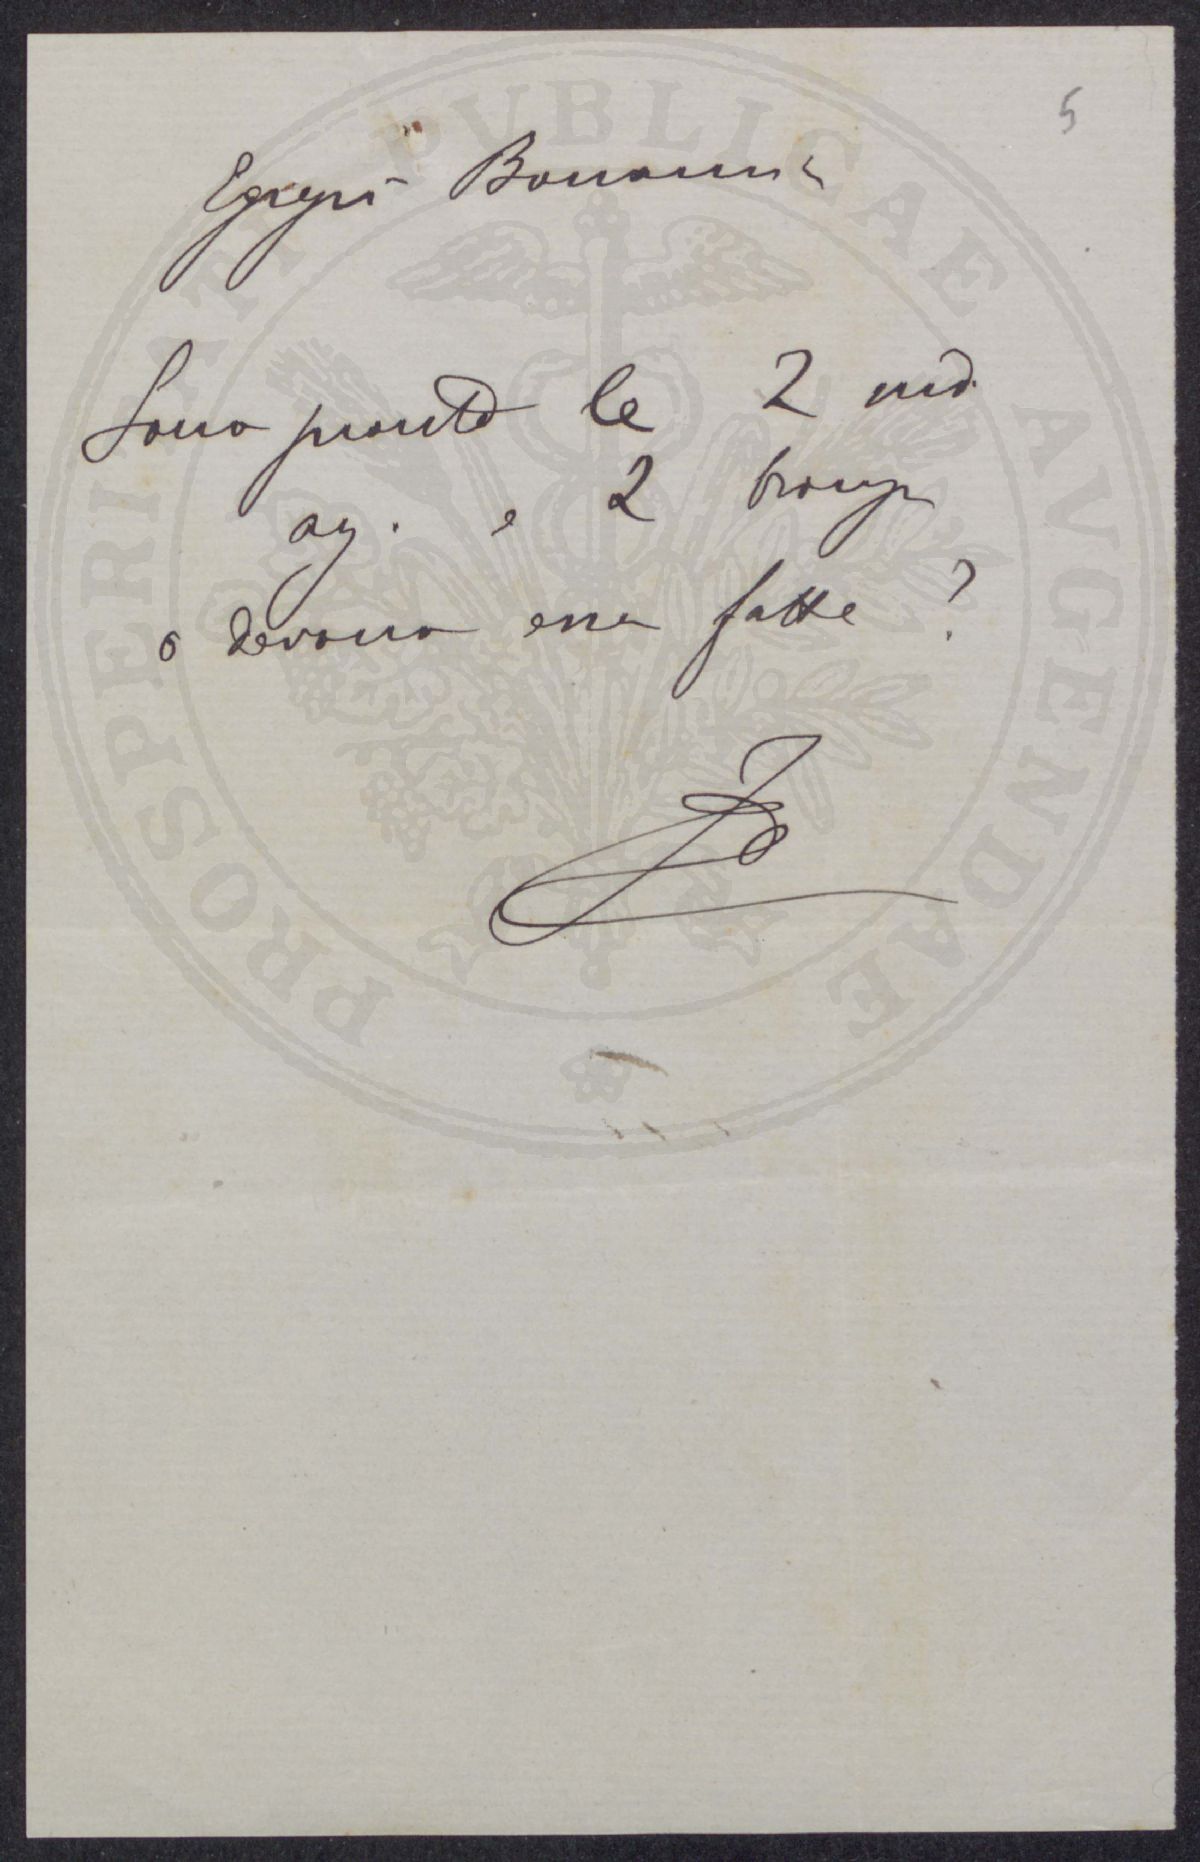 5
Egregi Bonomi
Sono pronte le 2 md.
ag. e 2 bronz
o devono esser fatte?
PROSPERITATI PVBLICAE AVGENDAE